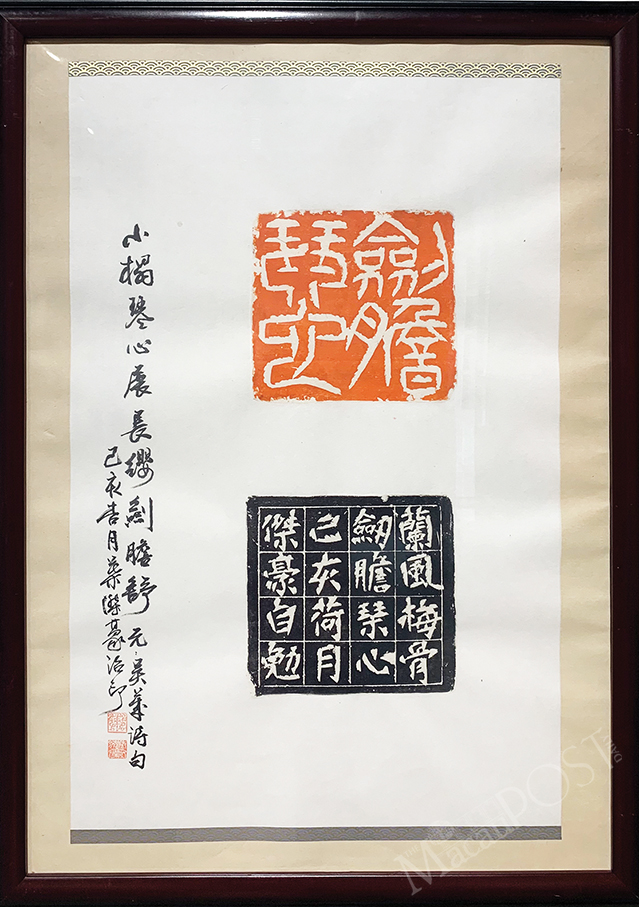 劍膽
琴心
蘭風梅骨
劒膽琹心
己亥荷月
傑豪自勉
小榻琴心展長纓劍膽舒 元 吳萊詩句
己亥杏月葉傑豪治印
Macau POST